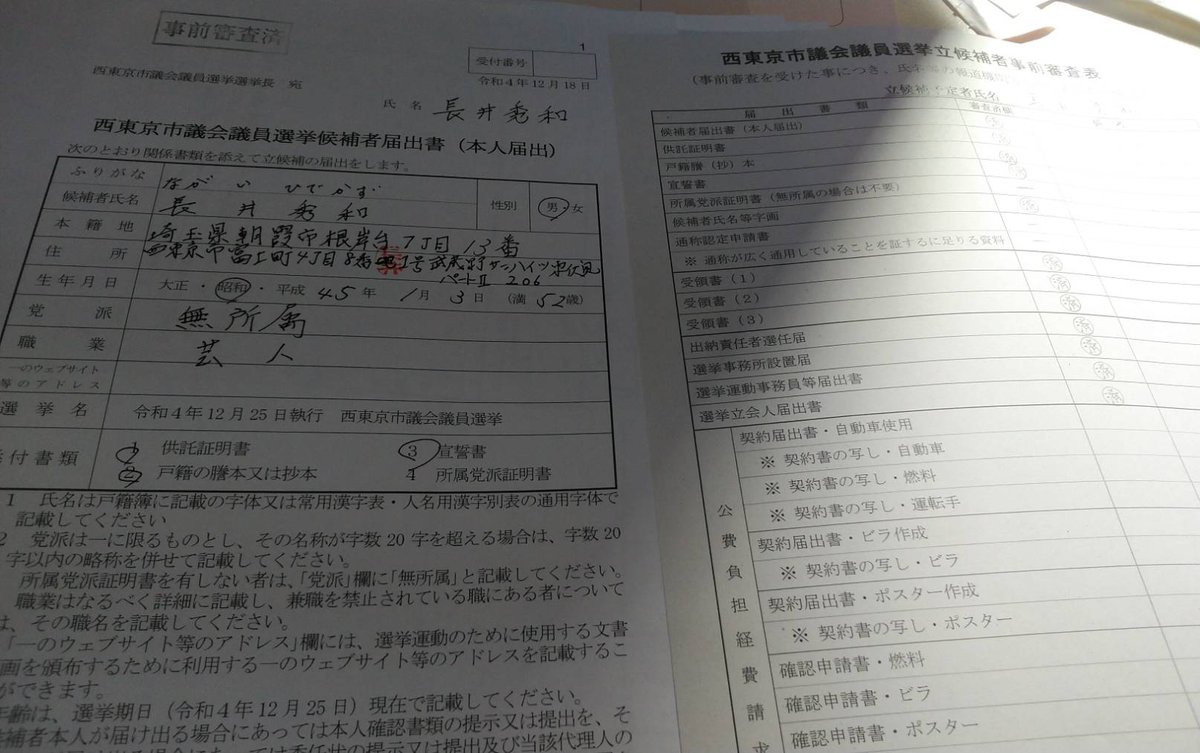 事前審査済
1
受付番号
令和4年12月18日
西東京市議会議員選挙選挙長 宛
氏名 長井秀和
西東京市議会議員選挙候補者届出書（本人届出）
次のとおり関係書類を添えて立候補の届出をします。
ふりがな ながい ひでかず
候補者氏名 長井秀和 性別 男・女
本籍地 埼玉県朝霞市根岸台7丁目13番
住所 西東京市富士町4丁目8番 号武蔵野サンハイツ東伏見
パートⅡ 206
生年月日 大正・昭和・平成 45年 1月 3日 （満 52歳）
党派 無所属
職業 芸人
一のウェブサイト
等のアドレス
選挙名 令和4年12月25日執行 西東京市議会議員選挙
付書類 1 供託証明書 3 宣誓書
2 戸籍の謄本又は抄本 4 所属党派証明書
1 氏名は戸籍簿に記載の字体又は常用漢字表・人名用漢字別表の通用字体で
記載してください
2 党派は一に限るものとし、その名称が字数20字を超える場合は、字数20
字以内の略称を併せて記載してください。
所属党派証明書を有しない者は、「党派」欄に「無所属」と記載してください。
職業はなるべく詳細に記載し、兼職を禁止されている職にある者について
は、その職名を記載してください。
「一のウェブサイト等のアドレス」欄には、選挙運動のために使用する文書
画を頒布するために利用する一のウェブサイト等のアドレスを記載するこ
ができます。
年齢は、選挙期日（令和4年12月25日）現在で記載してください。
候補者本人が届け出る場合にあっては本人確認書類の提示又は提出を、そ
の提示又は提出及び当該代理人の
西東京市議会議員選挙立候補者事前審査表
（事前審査を受けた事につき、氏名等の報道機
立候補予定者氏名
届出書類 審査済印
候補者届出書（本人届出）
供託証明書
戸籍謄（抄）本
宣誓書
所属党派証明書（無所属の場合は不要）
候補者氏名等字画
通称認定申請書
※ 通称が広く通用していることを証するに足りる資料
受領書（1）
受領書（2）
受領書（3）
出納責任者選任届
選挙事務所設置届
選挙運動事務員等届出書
選挙立会人届出書
公費負担経費請求
契約届出書・自動車使用
※ 契約書の写し・自動車
※ 契約書の写し・燃料
※ 契約書の写し・運転手
契約届出書・ビラ作成
※ 契約書の写し・ビラ
契約届出書・ポスター作成
※ 契約書の写し・ポスター
確認申請書・燃料
確認申請書・ビラ
確認申請書・ポスター